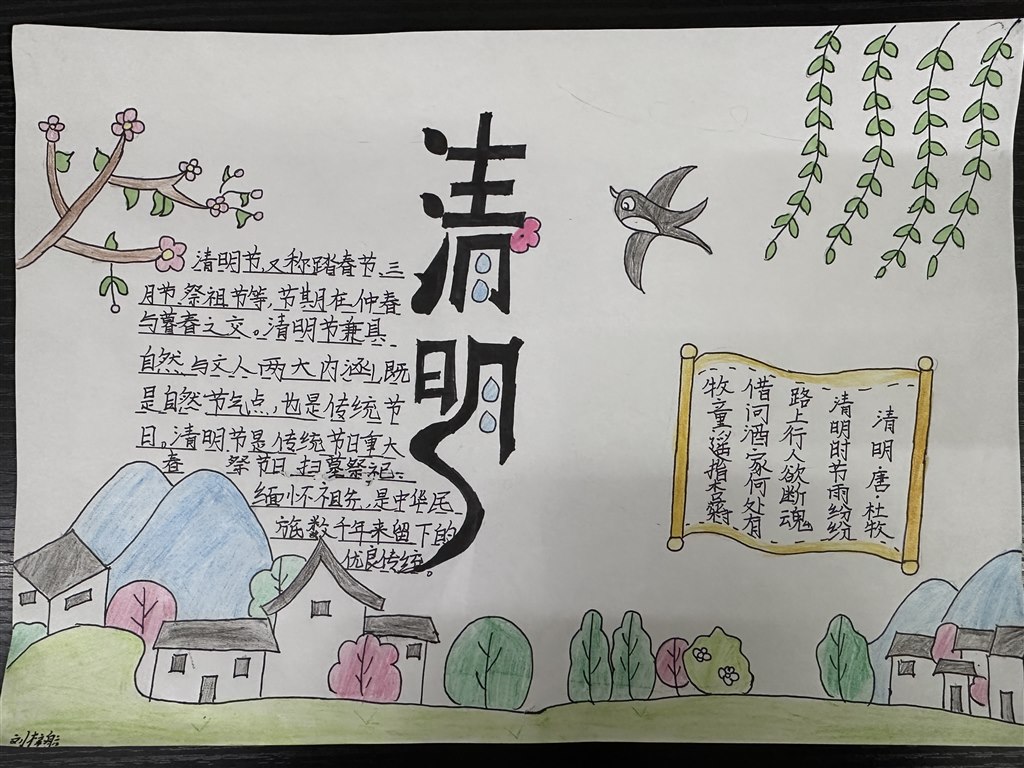 清明
清明节,又称踏春节、三
月节、祭祖节等,节期在仲春
与暮春之交。清明节兼具
自然与文人两大内涵,既
是自然节气点,也是传统节
日。清明节是传统节日重大
春 祭节日,扫墓祭祀、
缅怀祖先,是中华民
族数千年来留下的
优良传统。
清明 唐·杜牧
清明时节雨纷纷
路上行人欲断魂
借问酒家何处有
牧童遥指杏